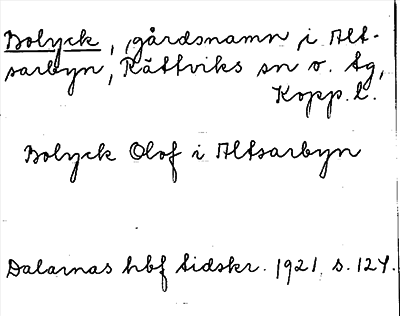 Bolyck, gårdsnamn i Alt-
sarbyn, Rättviks sn o. tg,
Kopp. l.
Bolyck Olof i Altsarbyn
Dalarnas hbf tidskr. 1921, s. 124.